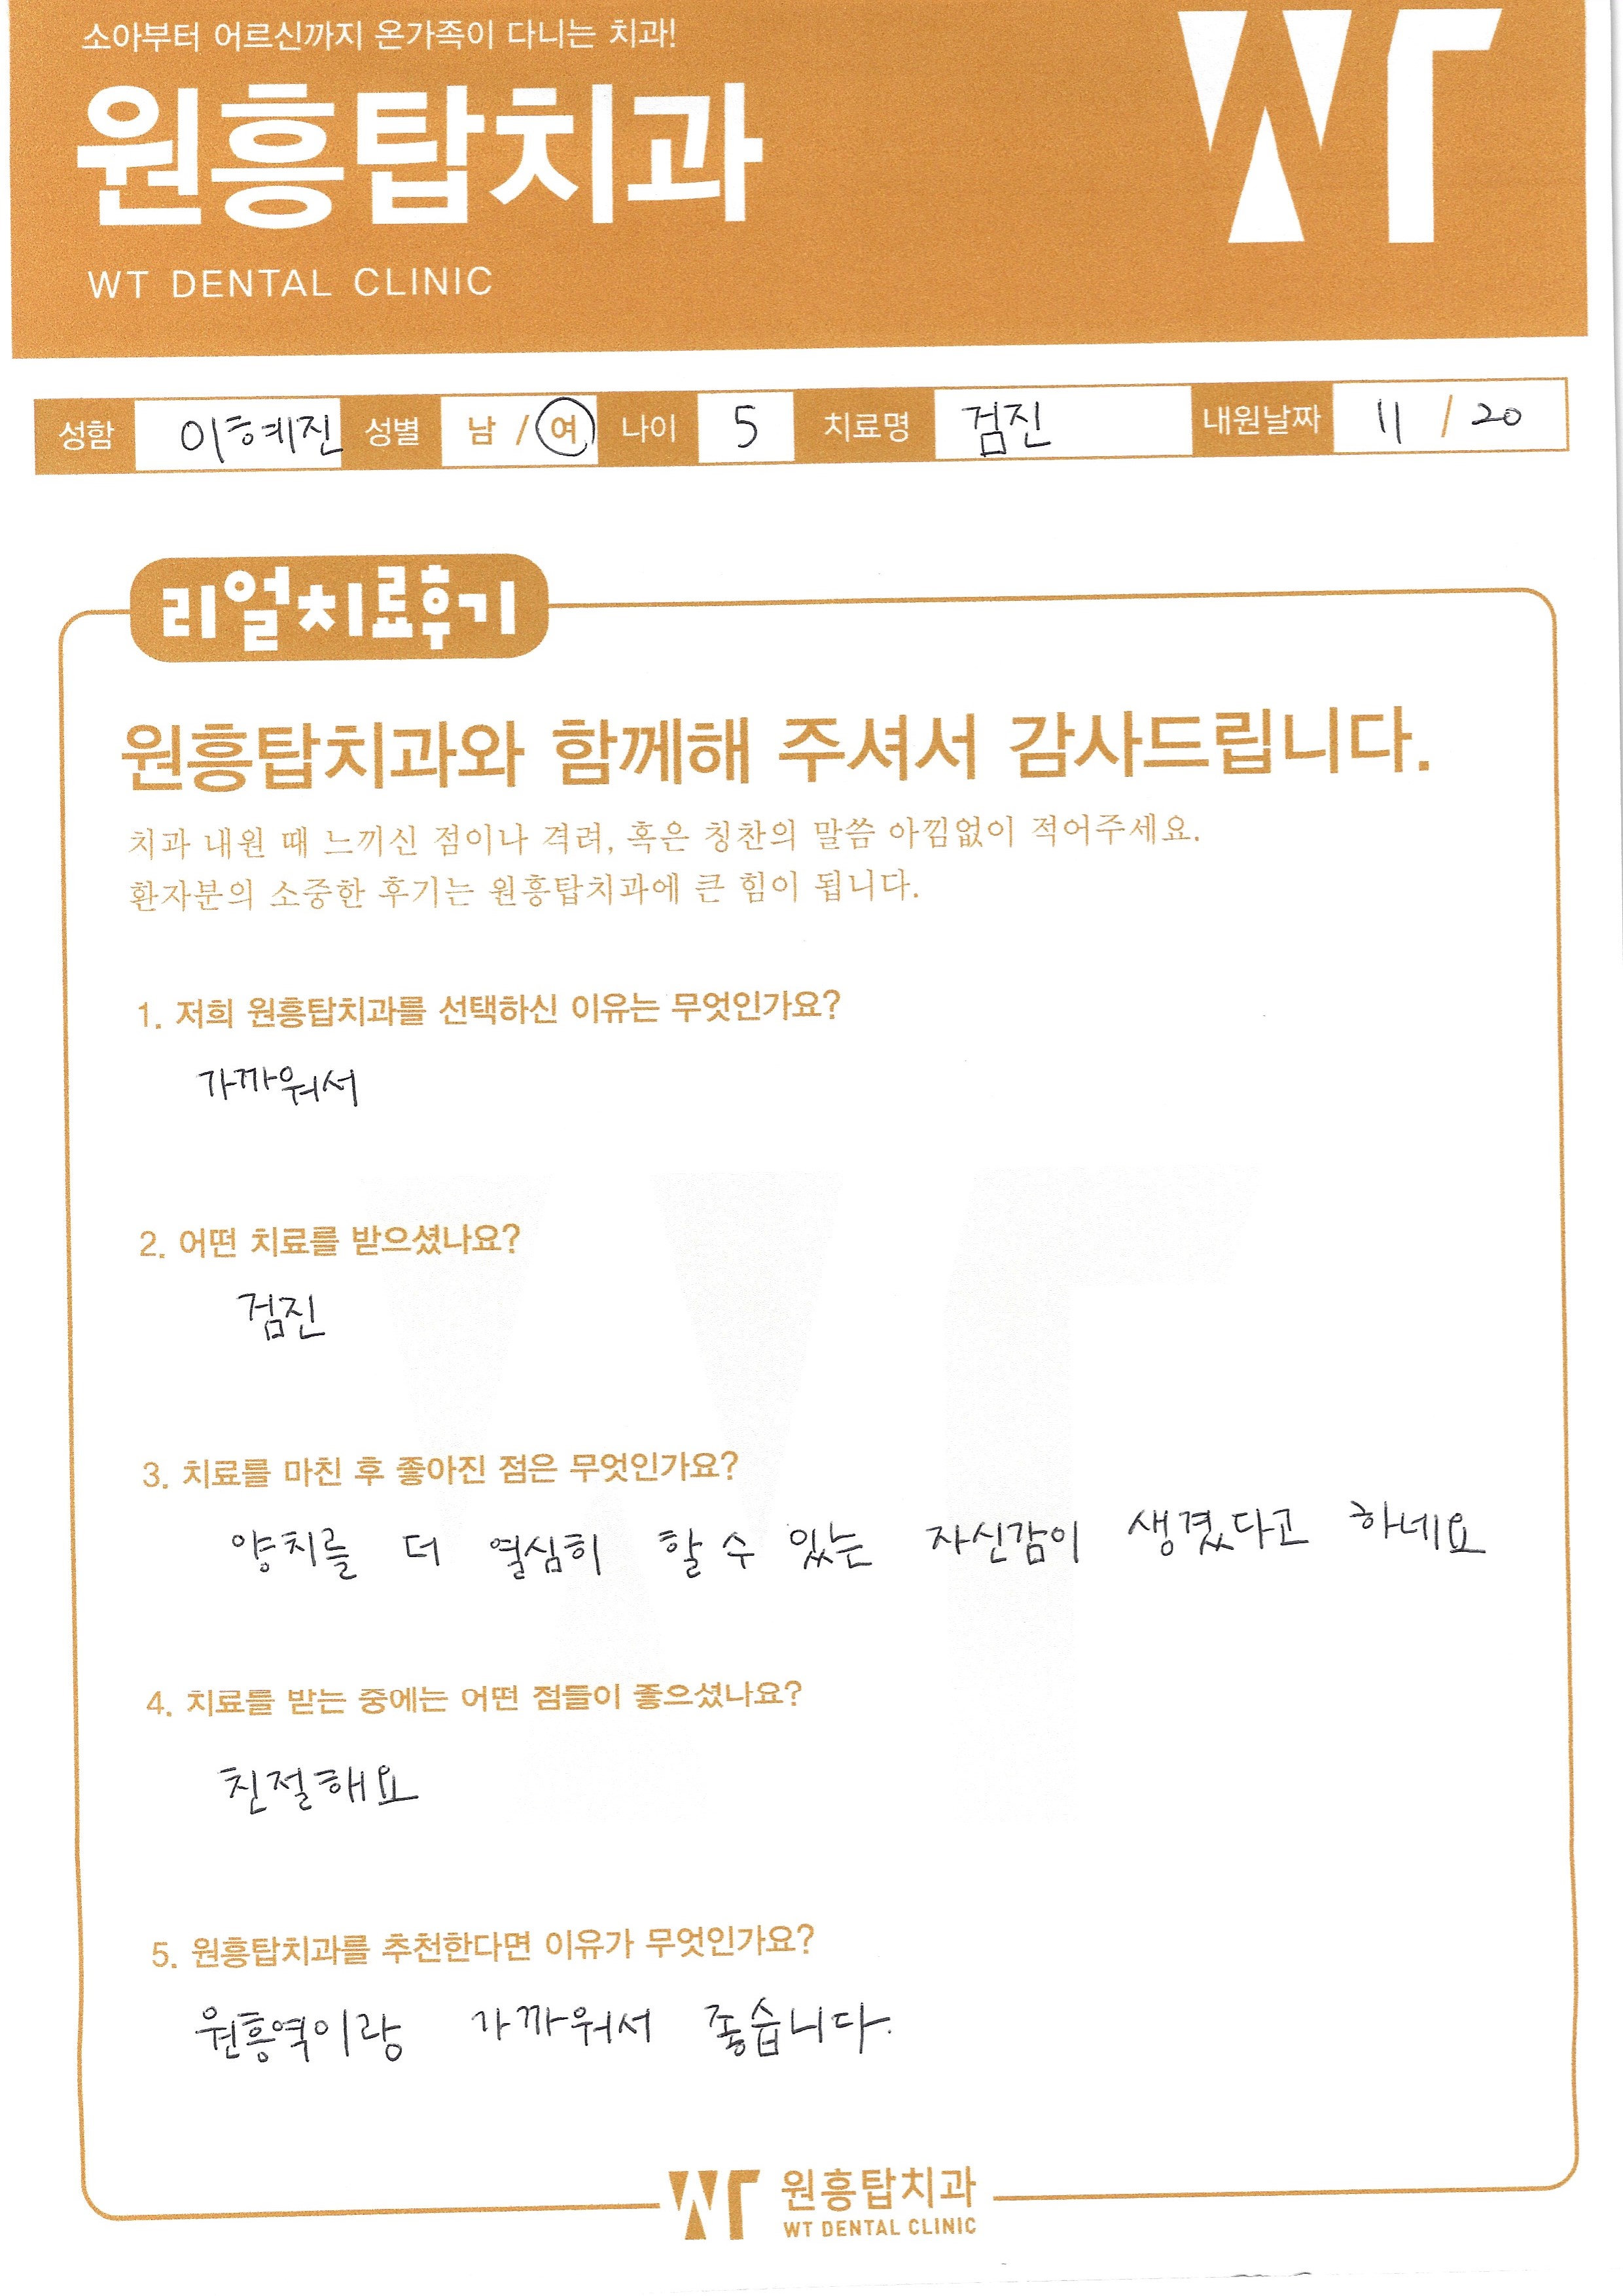 소아부터 어르신까지 온가족이 다니는 치과!
원흥탑치과
WT
WT DENTAL CLINIC
성함 이혜진 성별 남 / 여 나이 5 치료명 검진 내원날짜 11 / 20
리얼치료후기
원흥탑치과와 함께해 주셔서 감사드립니다.
치과 내원 때 느끼신 점이나 격려, 혹은 칭찬의 말씀 아낌없이 적어주세요.
환자분의 소중한 후기는 원흥탑치과에 큰 힘이 됩니다.
1. 저희 원흥탑치과를 선택하신 이유는 무엇인가요?
가까워서
2. 어떤 치료를 받으셨나요?
검진
3. 치료를 마친 후 좋아진 점은 무엇인가요?
양치를 더 열심히 할 수 있는 자신감이 생겼다고 하네요
4. 치료를 받는 중에는 어떤 점들이 좋으셨나요?
친절해요
5. 원흥탑치과를 추천한다면 이유가 무엇인가요?
원흥역이랑 가까워서 좋습니다.
WT 원흥탑치과
WT DENTAL CLINIC